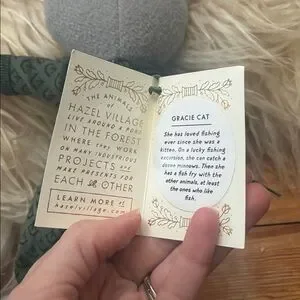 THE ANIMALS
OF
HAZEL VILLAGE
LIVE AROUND A POND
IN THE FOREST
WHERE THEY WORK
ON MANY INDUSTRIOUS
PROJECTS AND
MAKE PRESENTS FOR
EACH OTHER
LEARN MORE AT
hazelvillage.com
GRACIE CAT
She has loved fishing
ever since she was a
kitten. On a lucky fishing
excursion, she can catch a
dozen minnows. Then she
has a fish fry with the
other animals, at least
the ones who like
fish.